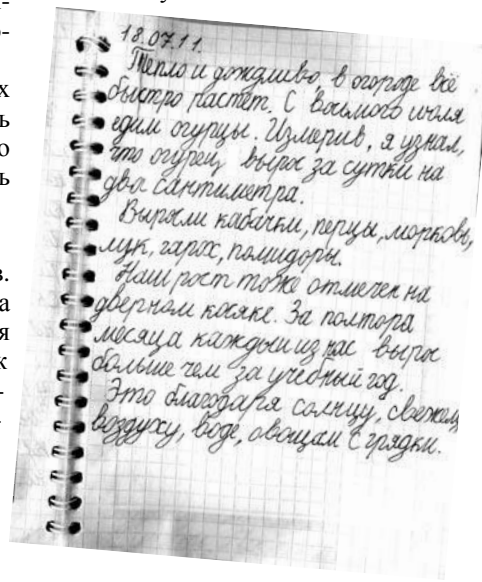 18.07.11.
Тепло и дождливо, в огороде всё
быстро растёт. С восьмого июля
едим огурцы. Измерив, я узнал,
что огурец вырос за сутки на
два сантиметра.
Выросли кабачки, перцы, морковь,
лук, горох, помидоры.
Наш рост тоже отмечен на
дверном косяке. За полтора
месяца каждый из нас вырос
больше чем за учебный год.
Это благодаря солнцу, свежему
воздуху, воде, овощам с грядки.